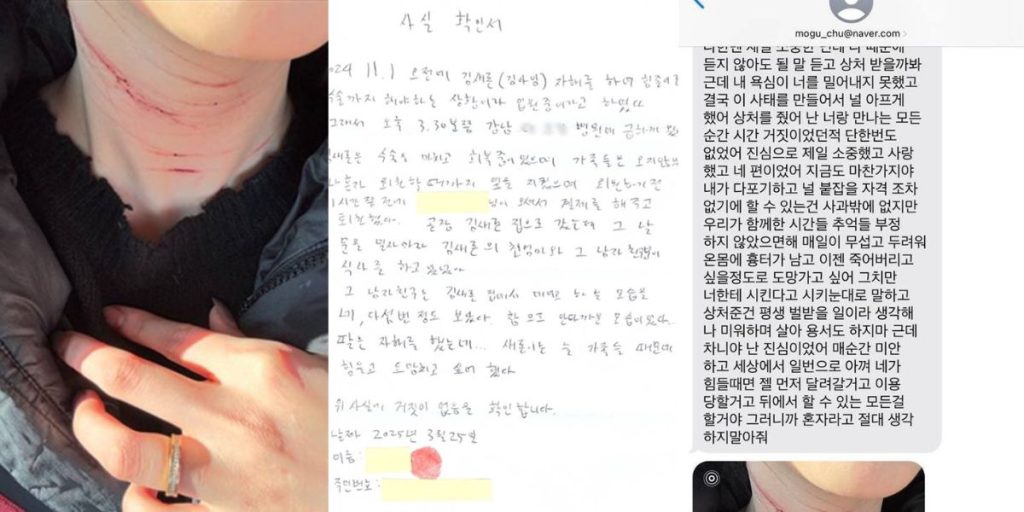 사실 확인서
11.1 오전에 김새론 자해를 하여
수술까지 해야하는 상황이라 입원중이라고 하였다
그래서 오후 3.30분쯤 강남 병원에 급하게
수술을 마치고 회복중이 있으며 가족들은 오지않았
퇴원할때까지 옆을 지켰으며 퇴원하기 전
1시간쯤 전에 님이 오셔서 결제를 해주고
퇴원했다. 곧장 김새론 집으로 갔는데 그 날
문을 열자마자 김새론의 친엄마와 그 남자친구분이
식사를 하고 있었다
그 남자친구는 김새론 집에서 데려고 하는 모습을
네, 다섯번 정도 보았다. 참으로 안타까운 모습이었다..
팔은 자해를 했는데... 새론이는 늘 가족들 때문에
힘들고 도망치고 싶어 했다
위 사실에 거짓이 없음을 확인합니다.
날짜 2025년 3월 25일
이름:
주민번호:
mogu_chu@naver.com >
듣지 않아도 될 말 듣고 상처 받을까봐
근데 내 욕심이 너를 밀어내지 못했고
결국 이 사태를 만들어서 널 아프게
했어 상처를 줬어 난 너랑 만나는 모든
순간 시간 거짓이었던적 단한번도
없었어 진심으로 제일 소중했고 사랑
했고 네 편이었어 지금도 마찬가지야
내가 다포기하고 널 붙잡을 자격 조차
없기에 할 수 있는건 사과밖에 없지만
우리가 함께한 시간들 추억들 부정
하지 않았으면해 매일이 무섭고 두려워
온몸에 흉터가 남고 이젠 죽어버리고
싶을정도로 도망가고 싶어 그치만
너한테 시킨다고 시키눈대로 말하고
상처준건 평생 벌받을 일이라 생각해
나 미워하며 살아 용서도 하지마 근데
차니야 난 진심이었어 매순간 미안
하고 세상에서 일번으로 아껴 네가
힘들때면 젤 먼저 달려갈거고 이용
당할거고 뒤에서 할 수 있는 모든걸
할거야 그러니까 혼자라고 절대 생각
하지말아줘